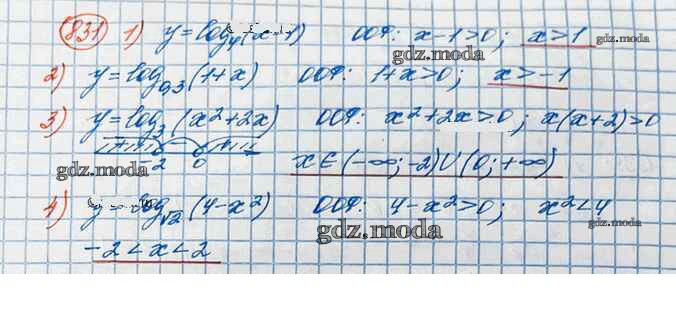 831 1) y = log₄(x-1) ООФ: x-1>0; x>1
gdz.moda
2) y = log₀,₃(1+x) ООФ: 1+x>0; x>-1
3) y = log₃(x²+2x) ООФ: x²+2x>0; x(x+2)>0
gdz.moda
-2 0 x∈(-∞;-2)∪(0;+∞)
gdz.moda
4) y = log√₂(4-x²) ООФ: 4-x²>0; x²<4
gdz.moda
gdz.moda
-2<x<2